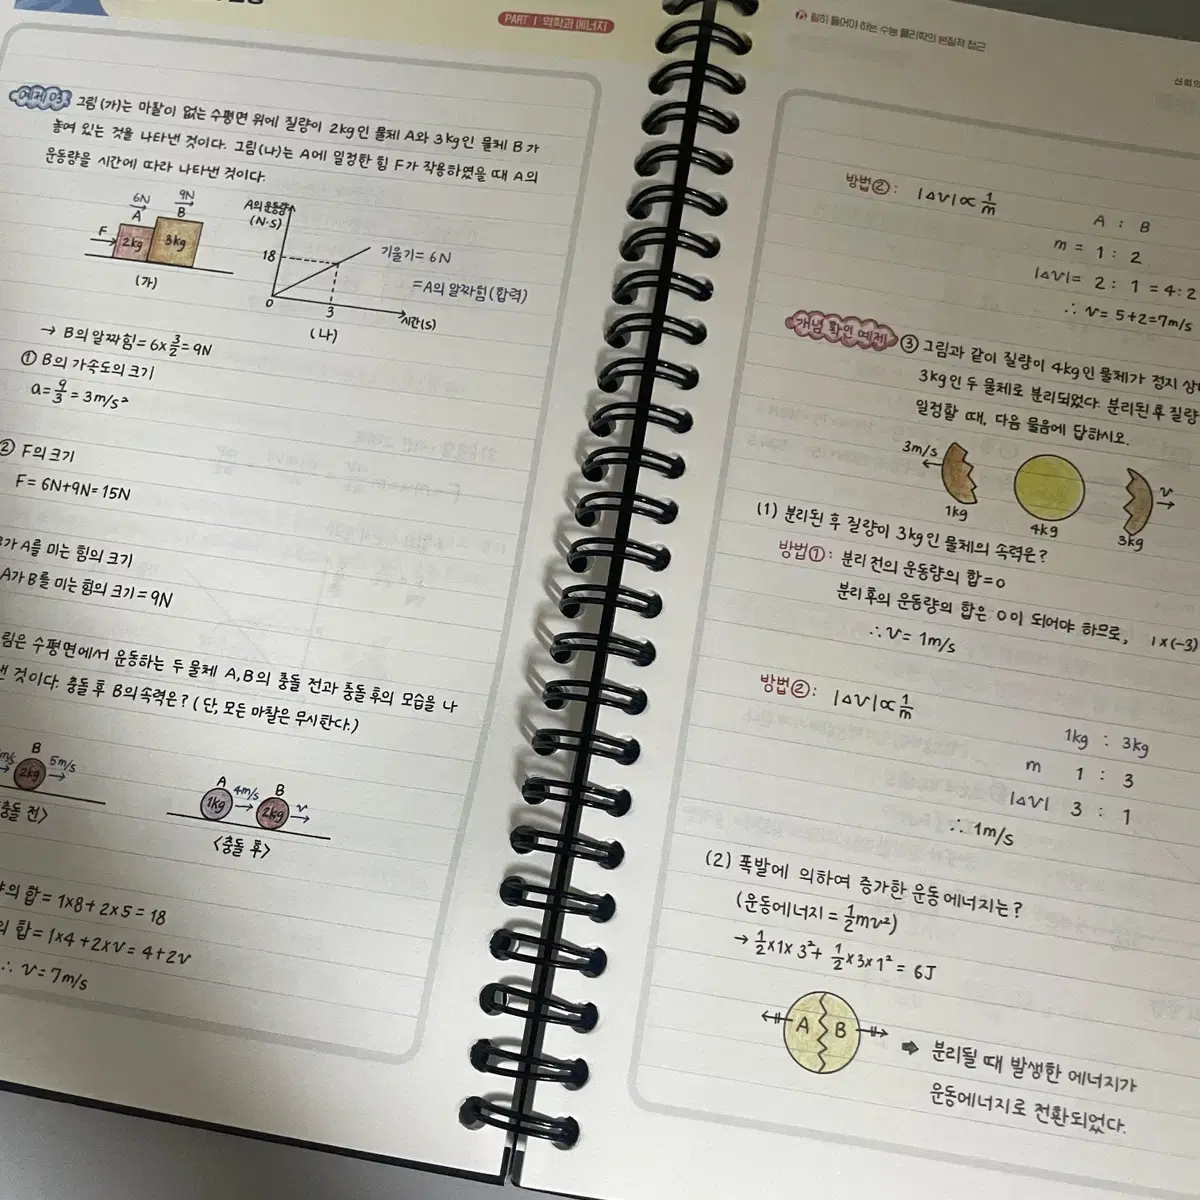 PART I 역학과 에너지
예제 03. 그림(가)는 마찰이 없는 수평면 위에 질량이 2kg인 물체 A와 3kg인 물체 B가
놓여 있는 것을 나타낸 것이다. 그림(나)는 A에 일정한 힘 F가 작용하였을 때 A의
운동량을 시간에 따라 나타낸 것이다.
6N 9N
A B
F 2kg 3kg
(가)
A의 운동량
(N·S)
18
0
3
시간(s)
(나)
기울기= 6N
=A의 알짜힘(합력)
→ B의 알짜힘= 6×3/2= 9N
① B의 가속도의 크기
a= 9/3 = 3m/s²
② F의 크기
F= 6N+9N= 15N
가 A를 미는 힘의 크기
A가 B를 미는 힘의 크기= 9N
림은 수평면에서 운동하는 두 물체 A,B의 충돌 전과 충돌 후의 모습을 나
낸 것이다. 충돌 후 B의 속력은? (단, 모든 마찰은 무시한다.)
m/s B 5m/s
2kg
충돌 전>
A 4m/s B v
1kg 2kg
<충돌 후>
의 합= 1×8+2×5= 18
의 합= 1×4+2×v= 4+2v
∴ v= 7m/s
필히 들어야 하는 수능 물리학의 본질적 접근
방법②: |△v|∝1/m
A : B
m = 1 : 2
|△v|= 2 : 1 = 4:2
∴ v= 5+2=7m/s
개념 확인 예제 ③ 그림과 같이 질량이 4kg인 물체가 정지 상
3kg인 두 물체로 분리되었다. 분리된 후 질량
일정할 때, 다음 물음에 답하시오.
3m/s
1kg
4kg
v
3kg
(1) 분리된 후 질량이 3kg인 물체의 속력은?
방법①: 분리 전의 운동량의 합=0
분리 후의 운동량의 합은 0이 되어야 하므로, 1×(-3)
∴ v= 1m/s
방법②: |△v|∝1/m
1kg : 3kg
m 1 : 3
|△v| 3 : 1
∴ 1m/s
(2) 폭발에 의하여 증가한 운동 에너지는?
(운동에너지= 1/2mv²)
→ 1/2×1×3²+ 1/2×3×1² = 6J
A B
➡ 분리될 때 발생한 에너지가
운동에너지로 전환되었다.